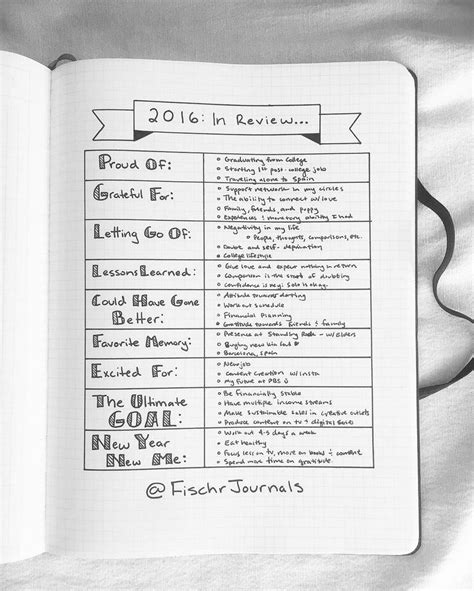 2016: In Review...
Proud Of:
Graduating from College
Starting 1st post-college job
Traveling alone to Spain
Grateful For:
Support network in my circles
The ability to connect w/love
Family, friends, and puppy
Experiences & monetary ability I had
Letting Go Of:
Negativity in my life
People, thoughts, comparisons, etc.
Doubt and self-deprivation
College lifestyle
Lessons Learned:
Give love and expect nothing in return
Comparison is the start of doubting
Confidence is key! Solo is okay.
Could Have Gone
Better:
Attitude towards dating
Workout schedule
Financial Planning
Gratitude towards friends & family
Favorite Memory:
Presence at Standing Rock - w/Elders
Buying new
Barcelona, Spain
Excited For:
New job
Content Creation w/Insta
My future at PBS
The Ultimate
GOAL:
Be Financially Stable
Have multiple income streams
Make sustainable sales in creative outlets
Produce content on tv + digital
New Year
New Me:
Work out 4-5 days a week
Eat healthy
Focus less on tv, more on books &
Spend more time on gratitude.
@FischrJournals